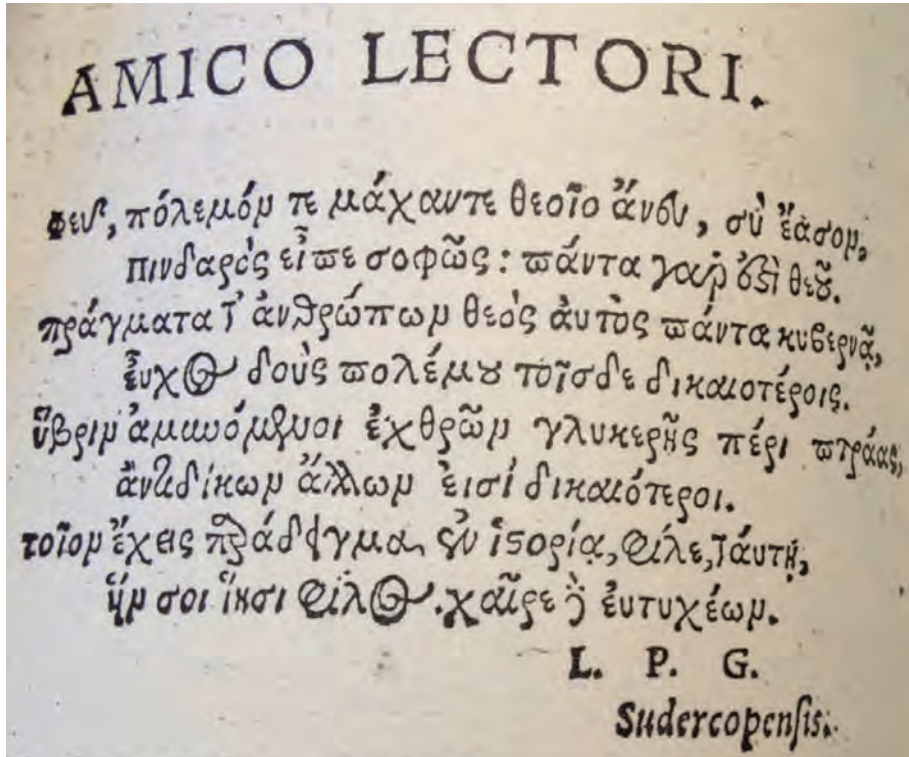 AMICO LECTORI.
φεῦ, πόλεμόν τε μάχαντε θεοῖο ἄνευ, σὺ ἔασον,
πινδαρὸς εἶπε σοφῶς: πάντα γὰρ ἐστὶ θεοῦ.
πράγματα τ' ἀνθρώπων θεὸς ἀυτὸς πάντα κυβερνᾷ,
ἔυχος δοὺς πολέμου τοῖσδε δικαιοτέροις.
ὕβριν ἀμυνόμενοι ἐχθρῶν γλυκερῆς πέρι πτράας,
ἀντιδίκων ἄλλων ἐισί δικαιότεροι.
τοῖον ἔχεις παράδειγμα ἐν ἱστορίᾳ, φίλε, ταύτῃ,
ἥν σοι ἵησι φίλος. χαῖρε καὶ ἐυτυχέων.
L. P. G.
Sudercopensis.